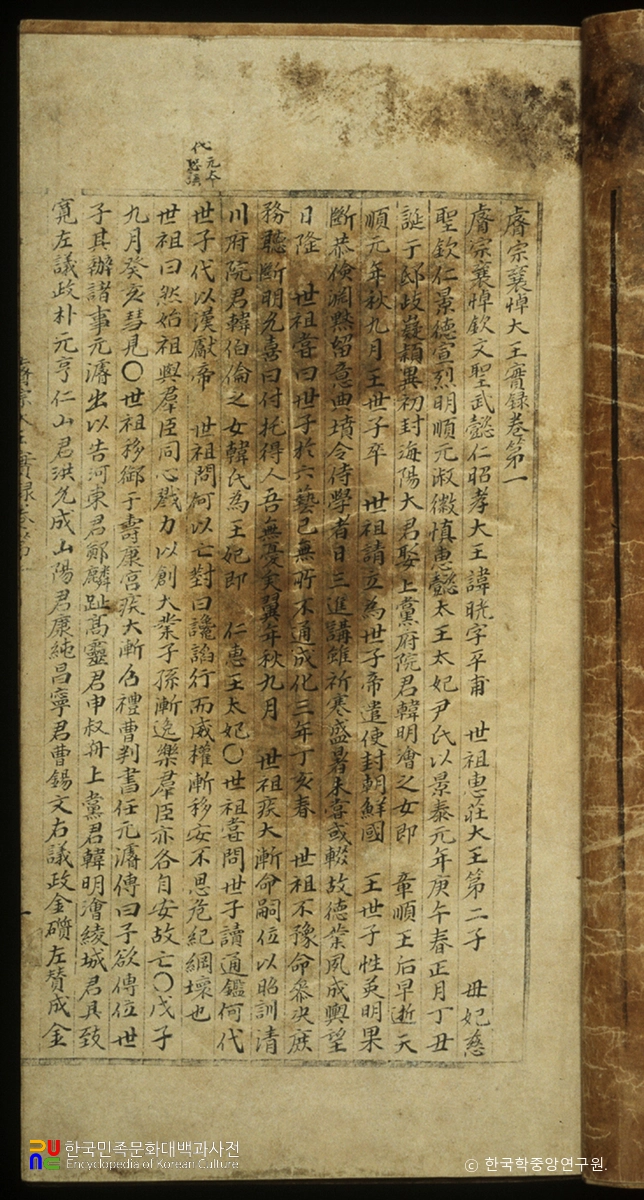 睿宗襄悼大王實錄卷第一
睿宗襄悼欽文聖武懿仁昭孝大王諱晄字平甫 世祖惠莊大王第二子 母妃慈
聖欽仁景德宣烈明順元淑徽慎惠懿太王太妃尹氏以景泰元年庚午春正月丁丑
誕于邸岐嶷穎異初封海陽大君娶上黨府院君韓明澮之女即 章順王后早逝天
順元年秋九月王世子卒 世祖請立為世子帝遣使封朝鮮國 王世子性英明果
斷恭儉淵默留意典墳令侍學者日三進講雖祈寒盛暑未嘗或輟故德業夙成輿望
日隆 世祖嘗曰世子於六藝已無所不通成化三年丁亥春 世祖不豫命叅決庶
務聽斷明允喜曰付托得人吾無憂矣翼年秋九月 世祖疾大漸命嗣位以昭訓清
川府院君韓伯倫之女韓氏為王妃即 仁惠王太妃〇世祖嘗問世子讀通鑑何代
世子代以漢獻帝 世祖問何以亡對曰讒諂行而威權漸移安不思危紀綱壞也
世祖曰然始祖與羣臣同心戮力以創大業子孫漸逸樂羣臣亦各自安故亡〇戊子
九月癸亥彗見〇世祖移御于壽康宮疾大漸召禮曹判書任元濬傳曰予欲傳位世
子其辦諸事元濬出以告河東君鄭麟趾高靈君申叔舟上黨君韓明澮綾城君具致
寬左議政朴元亨仁山君洪允成山陽君康純昌寧君曹錫文右議政金礩左贊成金
한국민족문화대백과사전
Encyclopedia of Korean Culture
© 한국학중앙연구원.